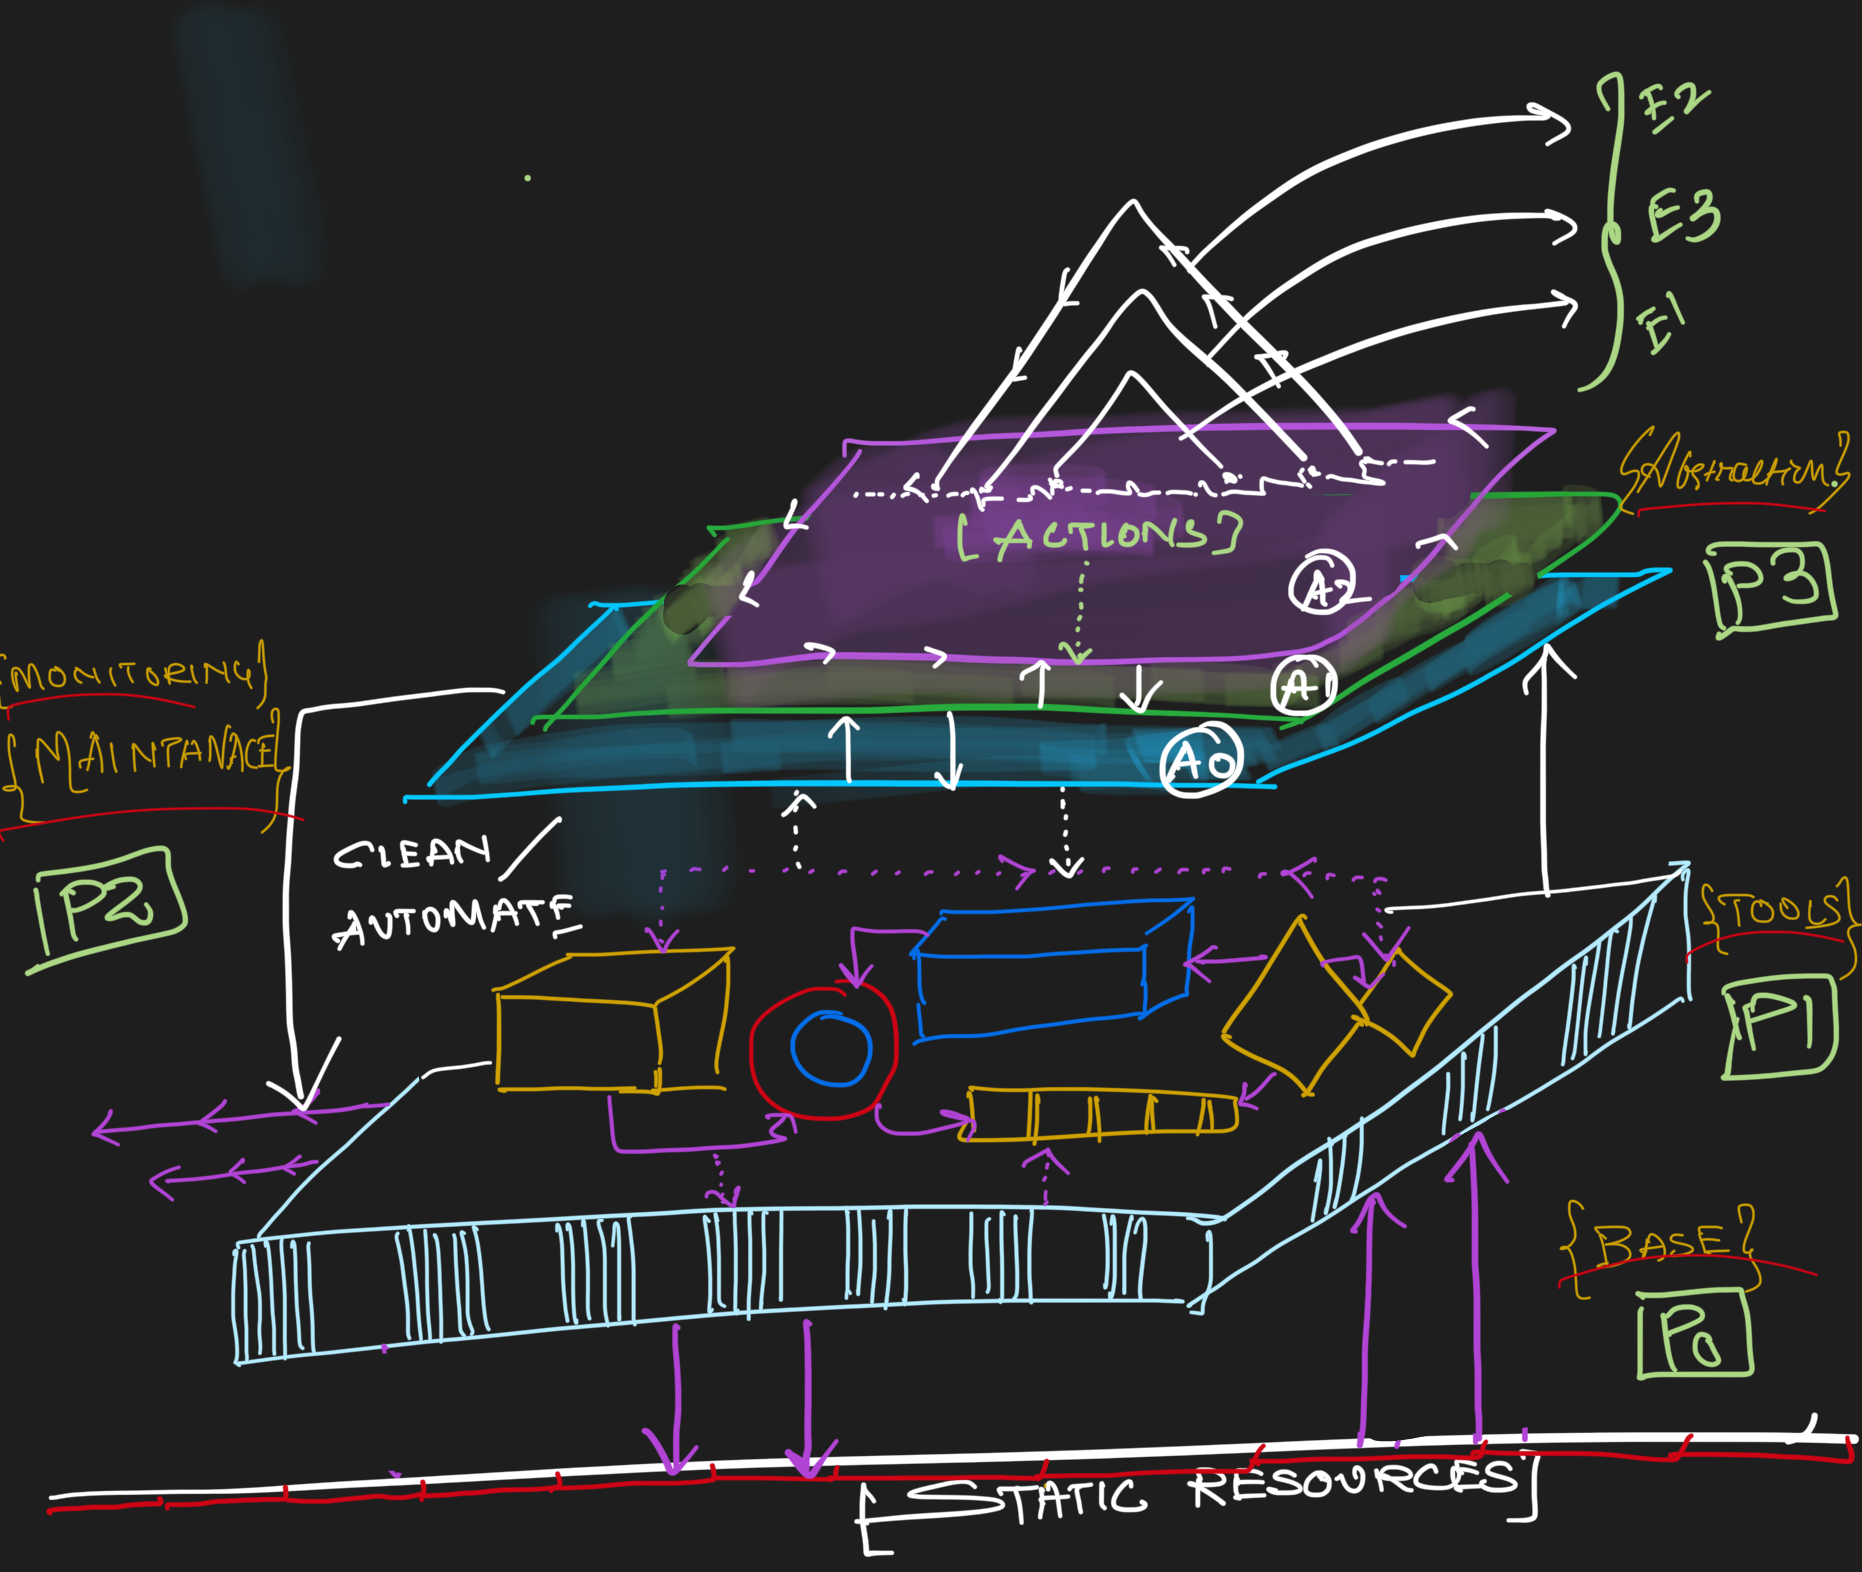 E2
E3
E1
{Abstraction}
[ACTIONS]
P3
A2
{MONITORING}
A1
{MAINTANACE}
A0
CLEAN /
AUTOMATE
P2
{TOOLS}
P1
{BASE}
P0
[STATIC RESOURCES]